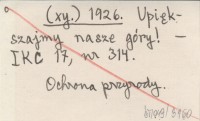 (xy.) 1926. Upięk-
szajmy nasze góry! -
IKC 17, nr 314.
Ochrona przyrody.